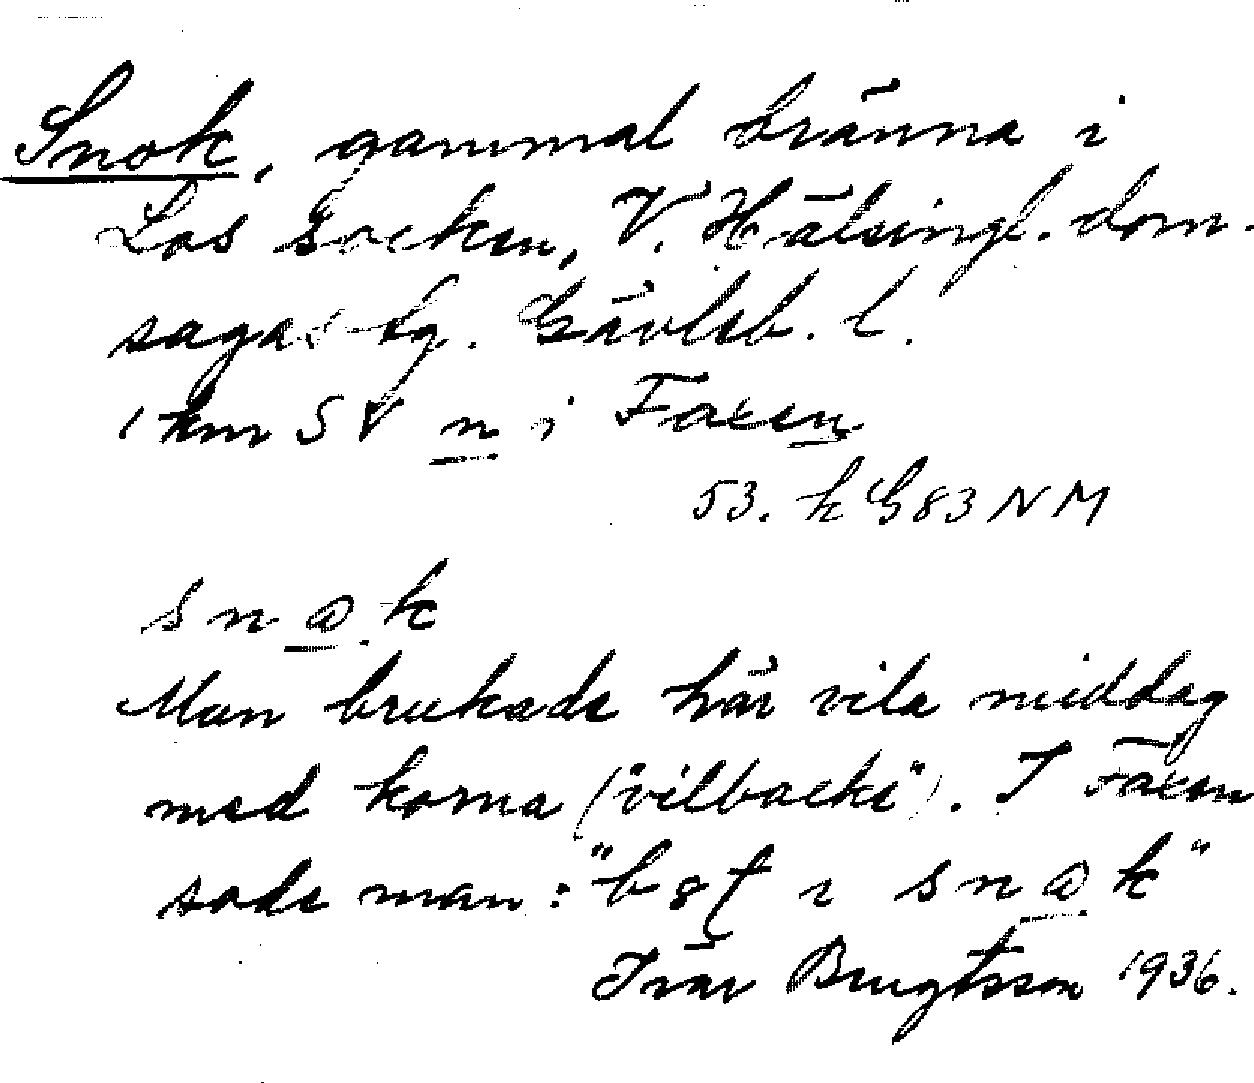 Snok, gammal bränna i
Los socken, V. Hälsingl. dom-
sagas tg. Gävleb. l.
1 km SV n i Faxen
53. k G83 NM
snɷ.k
Man brukade här vila middag
med korna ("vilbacke"). I Fåxen
sade man: "i snɷk"
Ivar Bengtsson 1936.